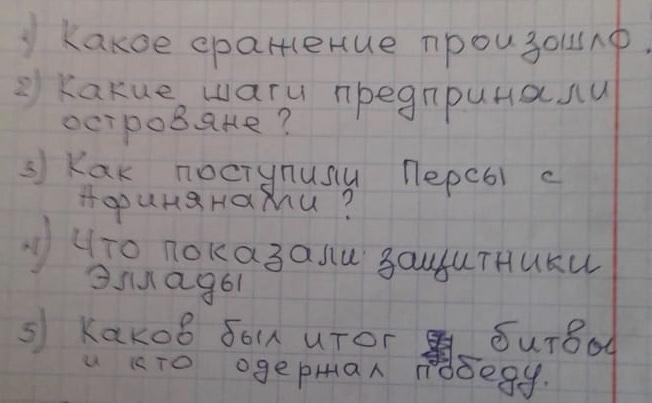 1) Какое сражение произошло.
2) Какие шаги предпринали
островяне?
3) Как поступили Персы с
Афинянами?
4) Что показали защитники
Эллады
5) Каков был итог битвы
и кто одержал победу.